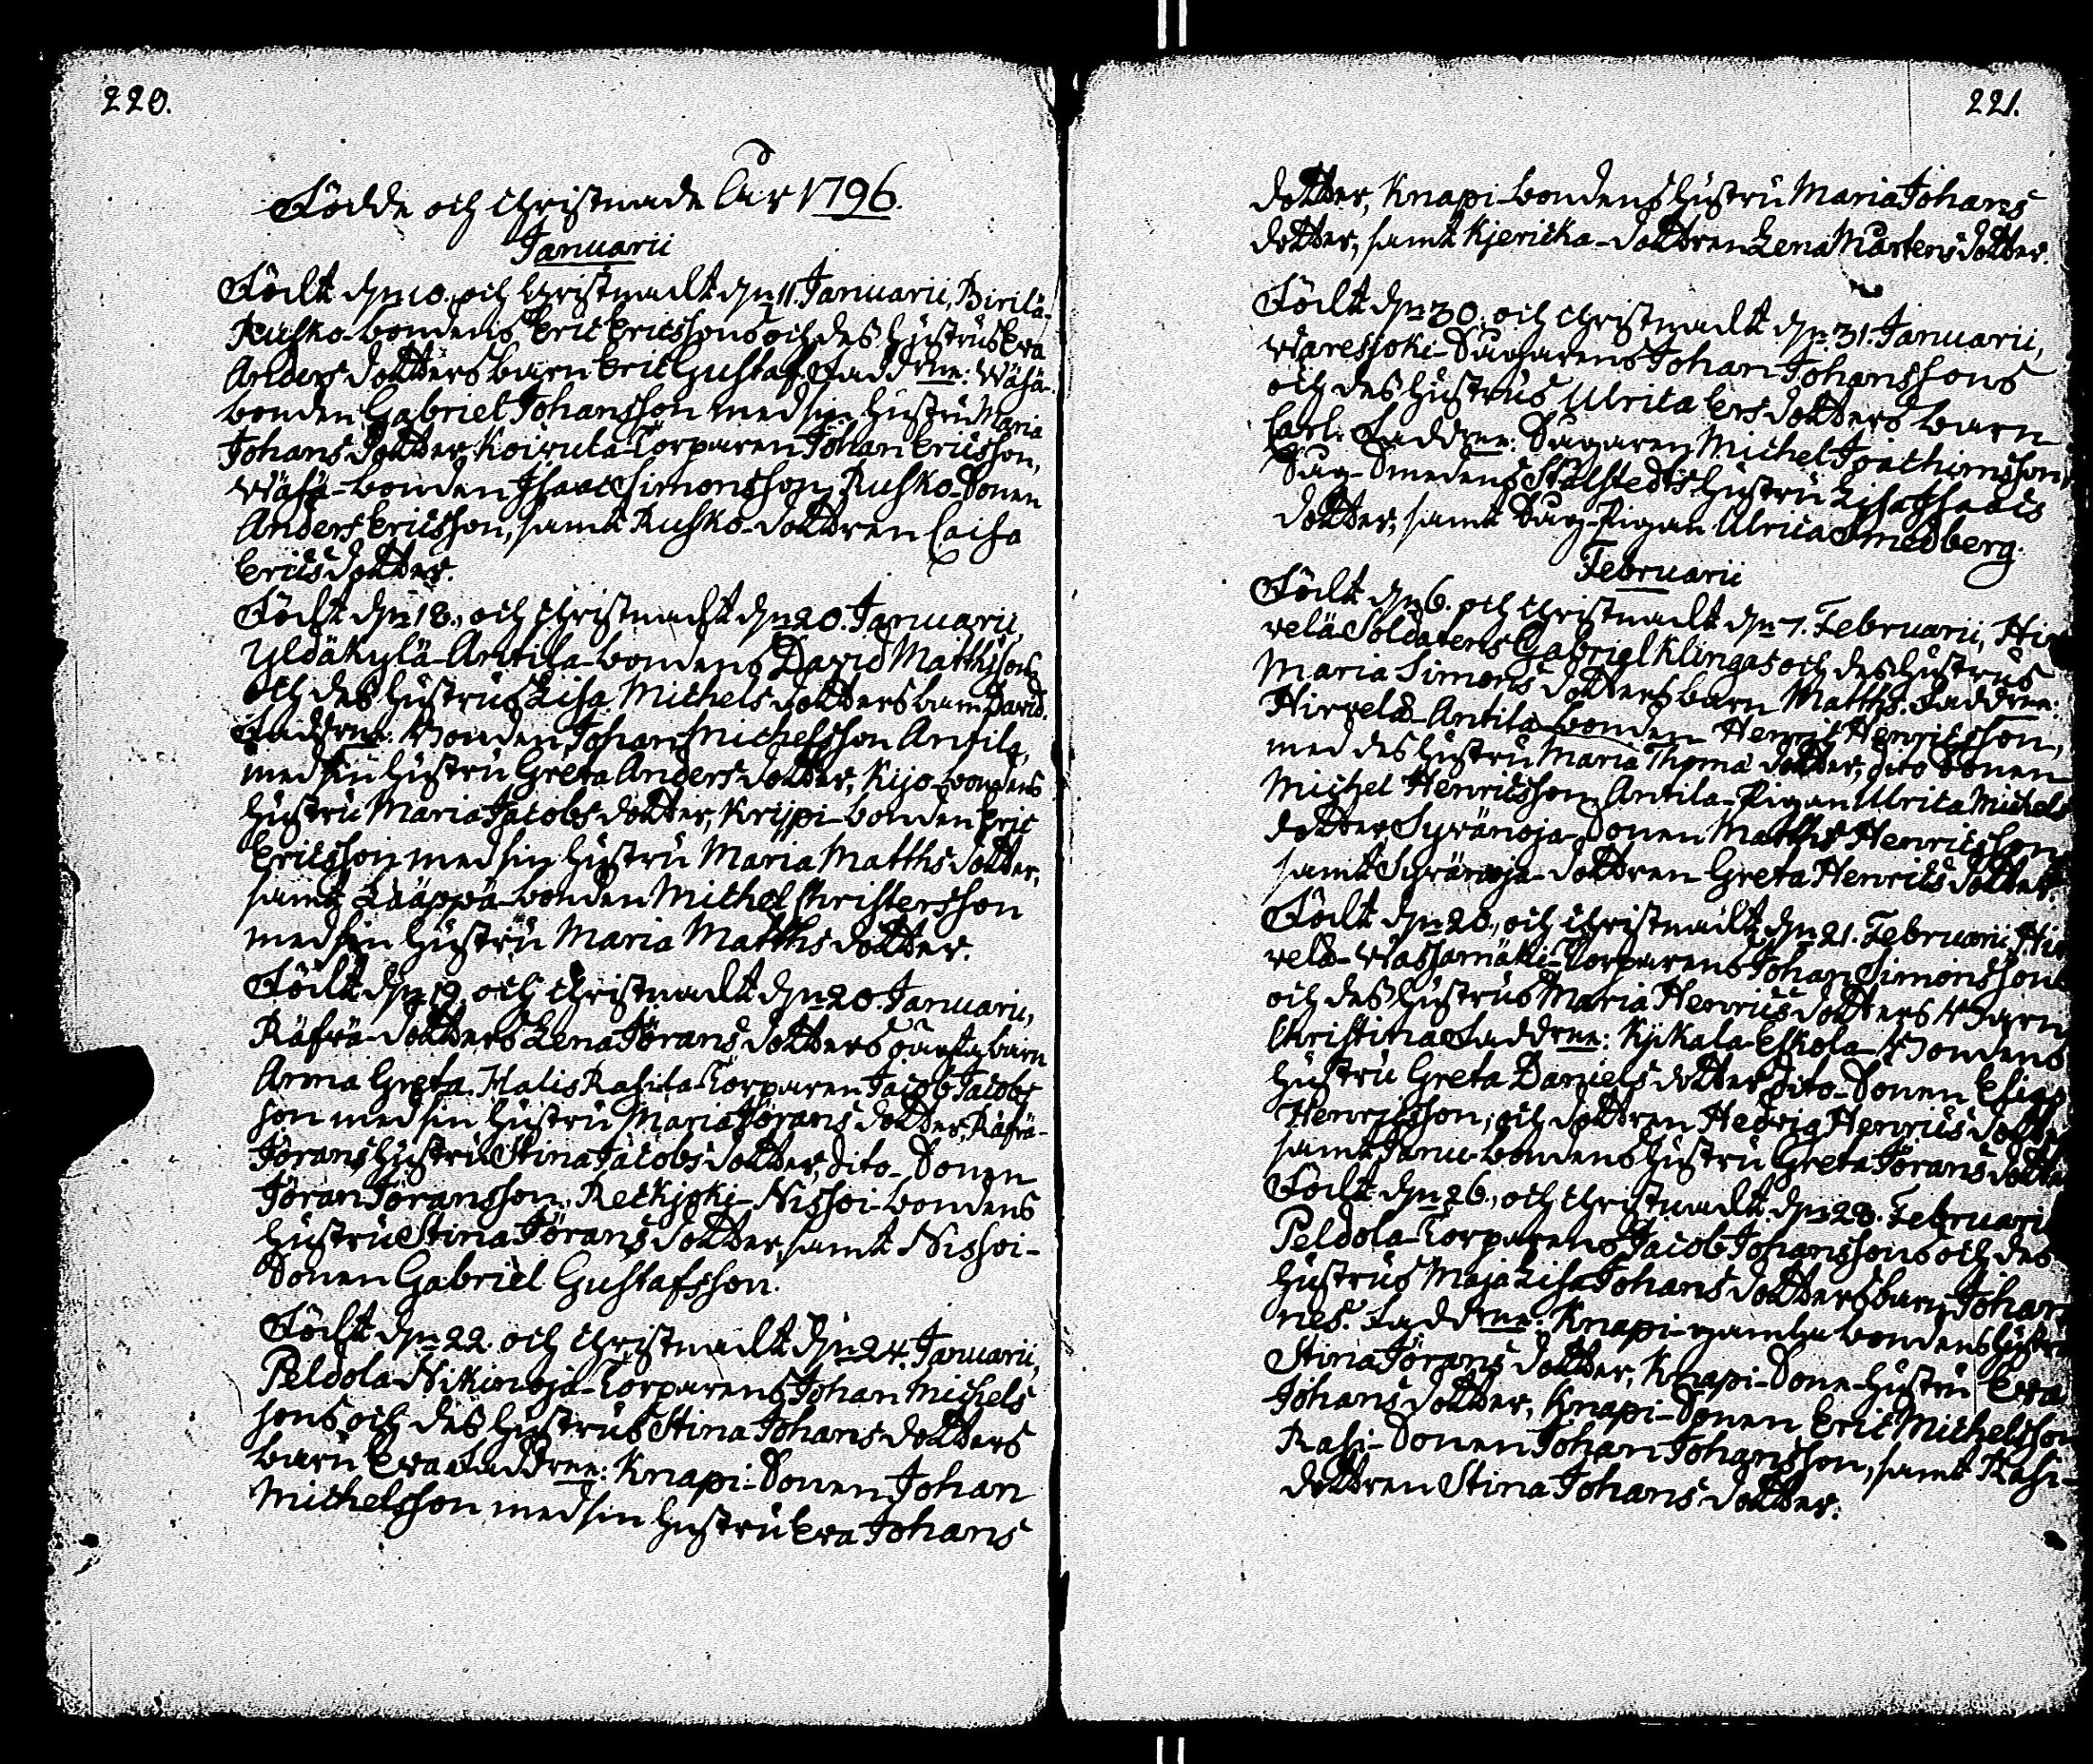 220.
Födde och Christnade Åhr 1796.
Januarii
Födt d. 10. och Christnadt d. 11. Januarii, Birilä-
Rusko-bondens Eric Ericssons och des Hustrus Eva
Anders dotters barn Eric Gustaf. Faddrne: Wähä-
bonden Gabriel Johansson med sin Hustru Maria
Johans dotter, Koivula-Torparen Johan Ericsson,
Wähä-bonden Isaac Simonsson, Rusko-Sonen
Anders Ericsson, samt Rusko-dottren Caisa
Erics dotter.
Födt d. 18. och Christnadt d. 20. Januarii,
Yldäkylä-Antila-bondens David Matthssons
och des Hustrus Lisa Michels dotters barn David.
Faddrne: Bonden Johan Michelsson Antila,
med sin Hustru Greta Anders dotter, Kijo-bondens
Hustru Maria Jacobs dotter, Krijpi-bonden Eric
Ericsson med sin Hustru Maria Matths dotter,
samt Lääppä-bonden Michel Christersson
med sin Hustru Maria Matths dotter.
Födt d. 19. och Christnadt d. 20. Januarii,
Räfvä-dotters Lena Jörans dotters oäkta barn
Anna Greta. Halis Rahila-Torparen Jacob Jacobs
son med sin Hustru Maria Jörans dotter, Räfvä-
Jörans Hustru Stina Jacobs dotter, dito-Sonen
Jöran Jöransson, Reckjoki-Nissoi-bondens
Hustru Stina Jörans dotter, samt Nissoi-
Sonen Gabriel Gustafsson.
Födt d. 22. och Christnadt d. 24. Januarii,
Peldola-Nikinoja-Torparens Johan Michels
sons och des Hustrus Stina Johans dotters
barn Eva. Faddrne: Knapi-Sonen Johan
Michelsson med sin Hustru Eva Johans
221.
dotter, Knapi-bondens Hustru Maria Johans
dotter, samt Kjericka-dottren Lena Mårtens dotter.
Födt d. 30. och Christnadt d. 31. Januarii,
Waresjoki-Sagarens Johan Johanssons
och des Hustrus Ulrica Ers dotters barn
Carl. Faddrne: Sagaren Michel Joachimsson,
Sag-Smedens Stålstedts Hustru Lisa Isaacs
dotter, samt Sag-Pigan Ulrica Smedberg.
Februarii
Födt d. 6. och Christnadt d. 7. Februarii, Hir
velä Soldatens Gabriel Klingas och des Hustrus
Maria Simons dotters barn Matths. Faddrne:
Hirvelä-Antila-bonden Henric Henricsson,
med des Hustru Maria Thoma dotter, dito Sonen
Michel Henricsson, Antila-Pigan Ulrica Michels
dotter, Syränoja-Sonen Matths Henricsson,
samt Syränoja-dottren Greta Henrics dotter.
Födt d. 20. och Christnadt d. 21. Februarii, Hir
velä-Wassamäki-Torparens Johan Simonssons
och des Hustrus Maria Henrics dotters Barn
Christina. Faddrne: Kijkala-Eskola-Bondens
Hustru Greta Daniels dotter, dito-Sonen Esias
Henricsson, och dottren Hedvig Henrics dotter
samt Janu-bondens Hustru Greta Jörans dotter
Födt d. 26. och Christnadt d. 28. Februari
Peldola-Torparens Jacob Johanssons och des
Hustrus Maja Lisa Johans dotters barn Johan
nes. Faddrne: Knapi-gamla bondens Hustru
Stina Jörans dotter, Knapi-Sone-Hustru Eva
Johans dotter, Knapi-Sonen Eric Michelsson
Rahi-Sonen Johan Johansson, samt Rahi-
dottren Stina Johans dotter.